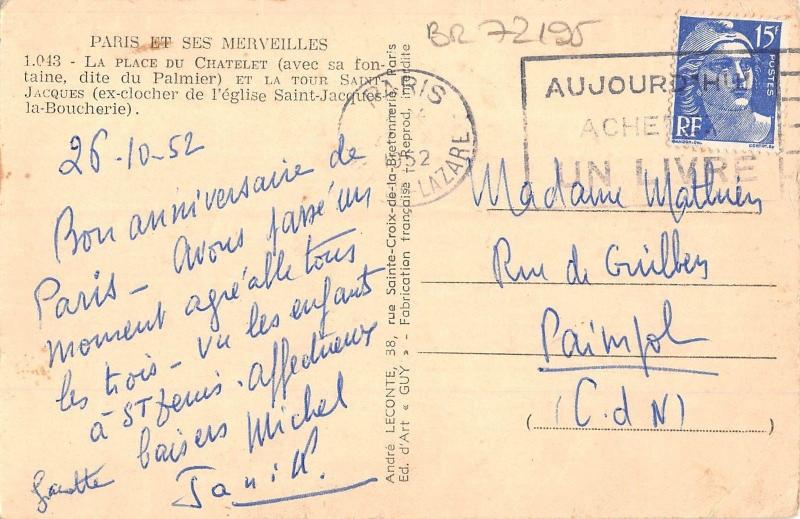 PARIS ET SES MERVEILLES
1.043 - LA PLACE DU CHATELET (avec sa fon-
taine, dite du Palmier) ET LA TOUR SAINT-
JACQUES (ex-clocher de l'église Saint-Jacques-
la-Boucherie).
26-10-52
Bon anniversaire de
Paris - Avons passé un
moment agréable tous
les trois - Vu les enfants
à St Denis. Affectueux
baisers Michel
André LECONTE, 38, rue Sainte-Croix-de-la-Bretonnerie, Paris
Ed. d'Art « GUY » - Fabrication française - Reprod. interdite
BR 72195
PARIS
1952
LAZARE
AUJOURD'HUI
ACHETEZ
UN LIVRE
15F
POSTES
RF
Madame Mathieu
Rue de Guilben
Paimpol
(C.d N)